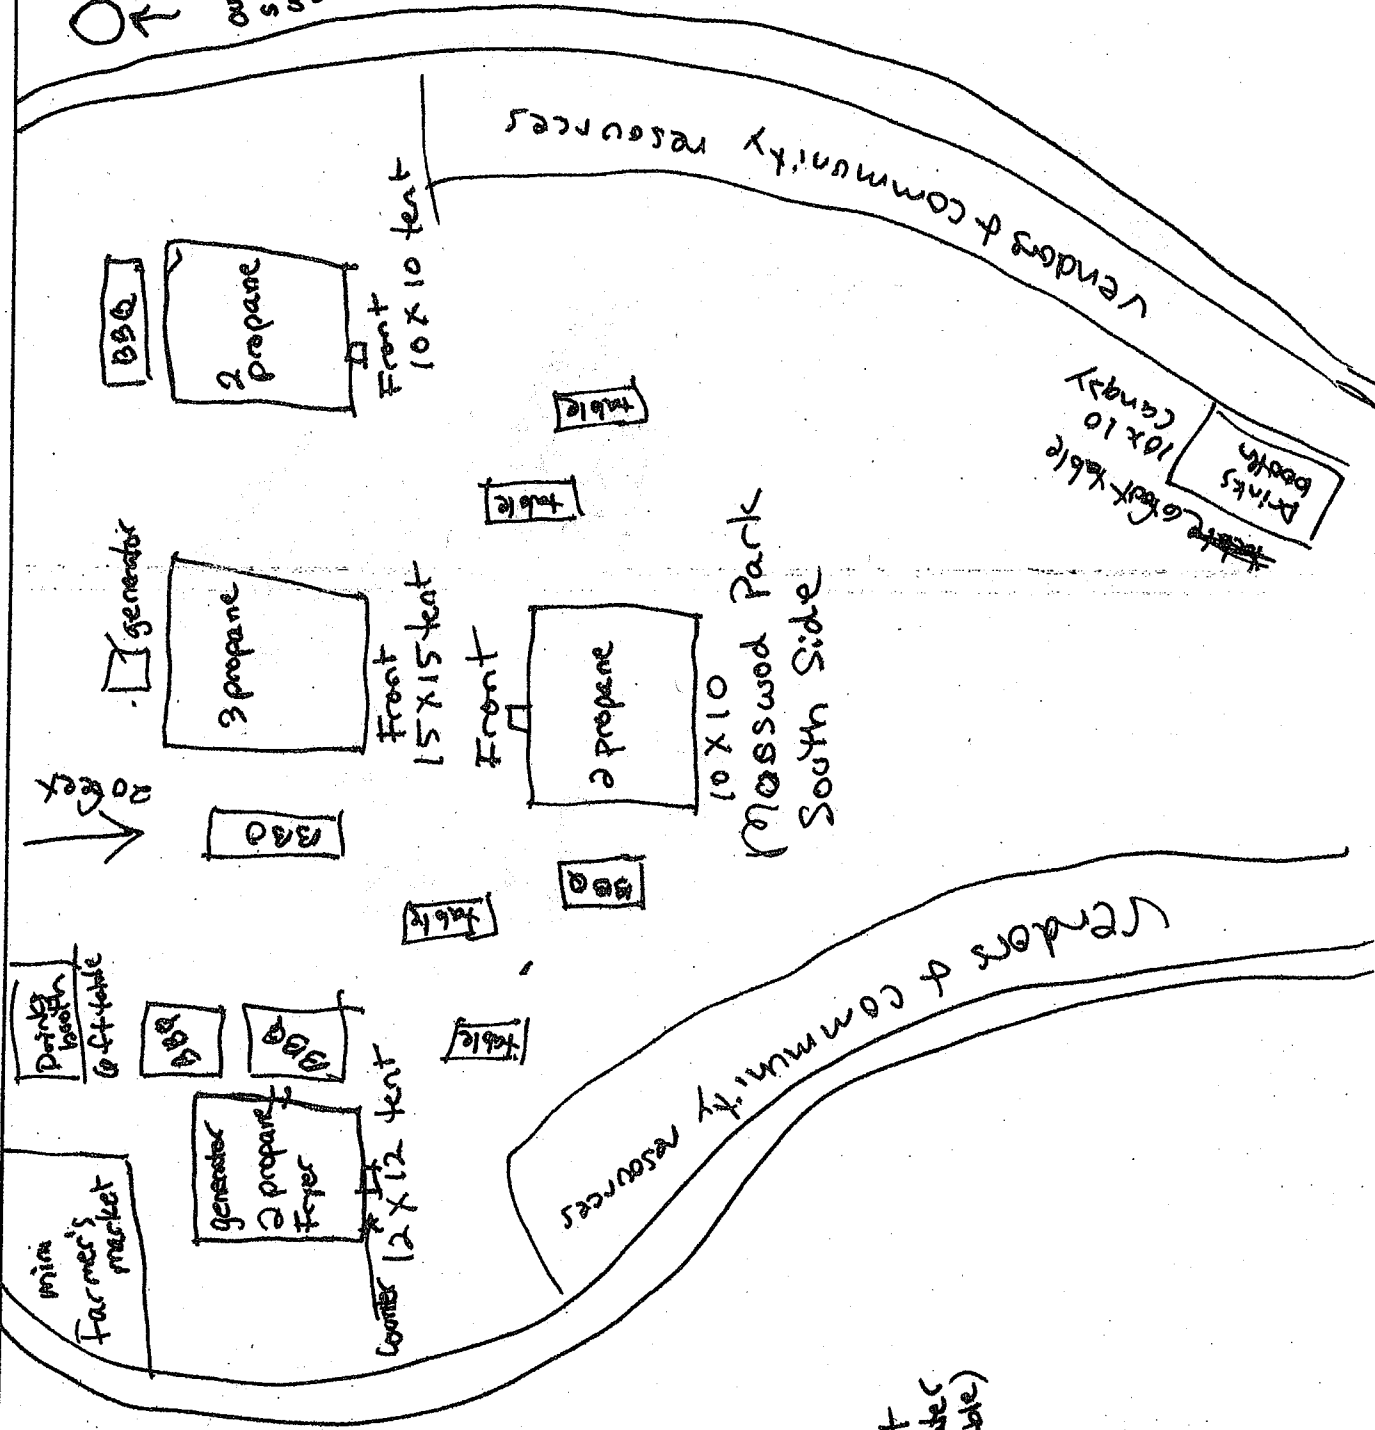 vendors & community resources
BBQ
2
propane
Front
10 X 10 tent
table
table
10 x 10
Drinks
booth
generator
3 propane
Front
15 X 15 tent
Front
2 propane
10 X 10
Mosswod Park
South Side
20 feet
BBQ
BBQ
table
table
Drinks
booth
6 ft table
BBQ
BBQ
generator
2 propane
Fryer
12 X 12 tent
counter
mini
Farmer's
market
vendors & community resources